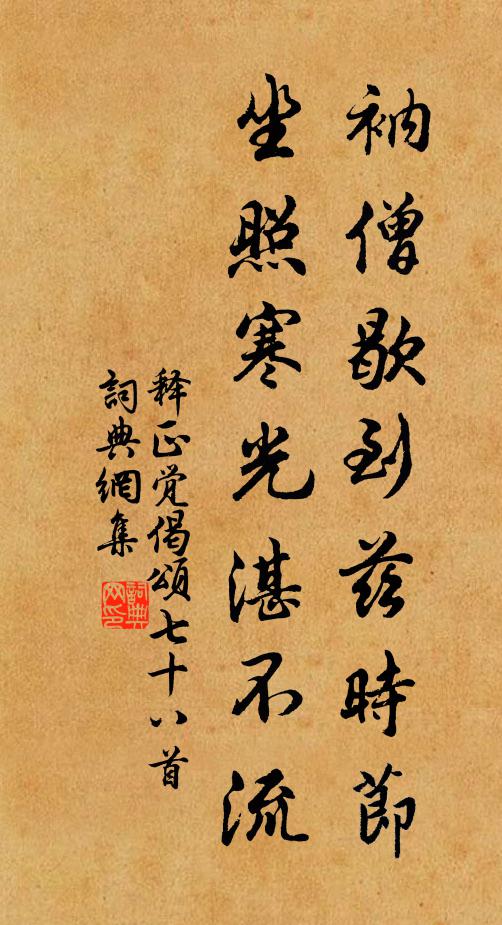 衲僧歇到茲時節
坐照寒光湛不流
释正覚偈頌七十八首
詞典網集
詞典網印